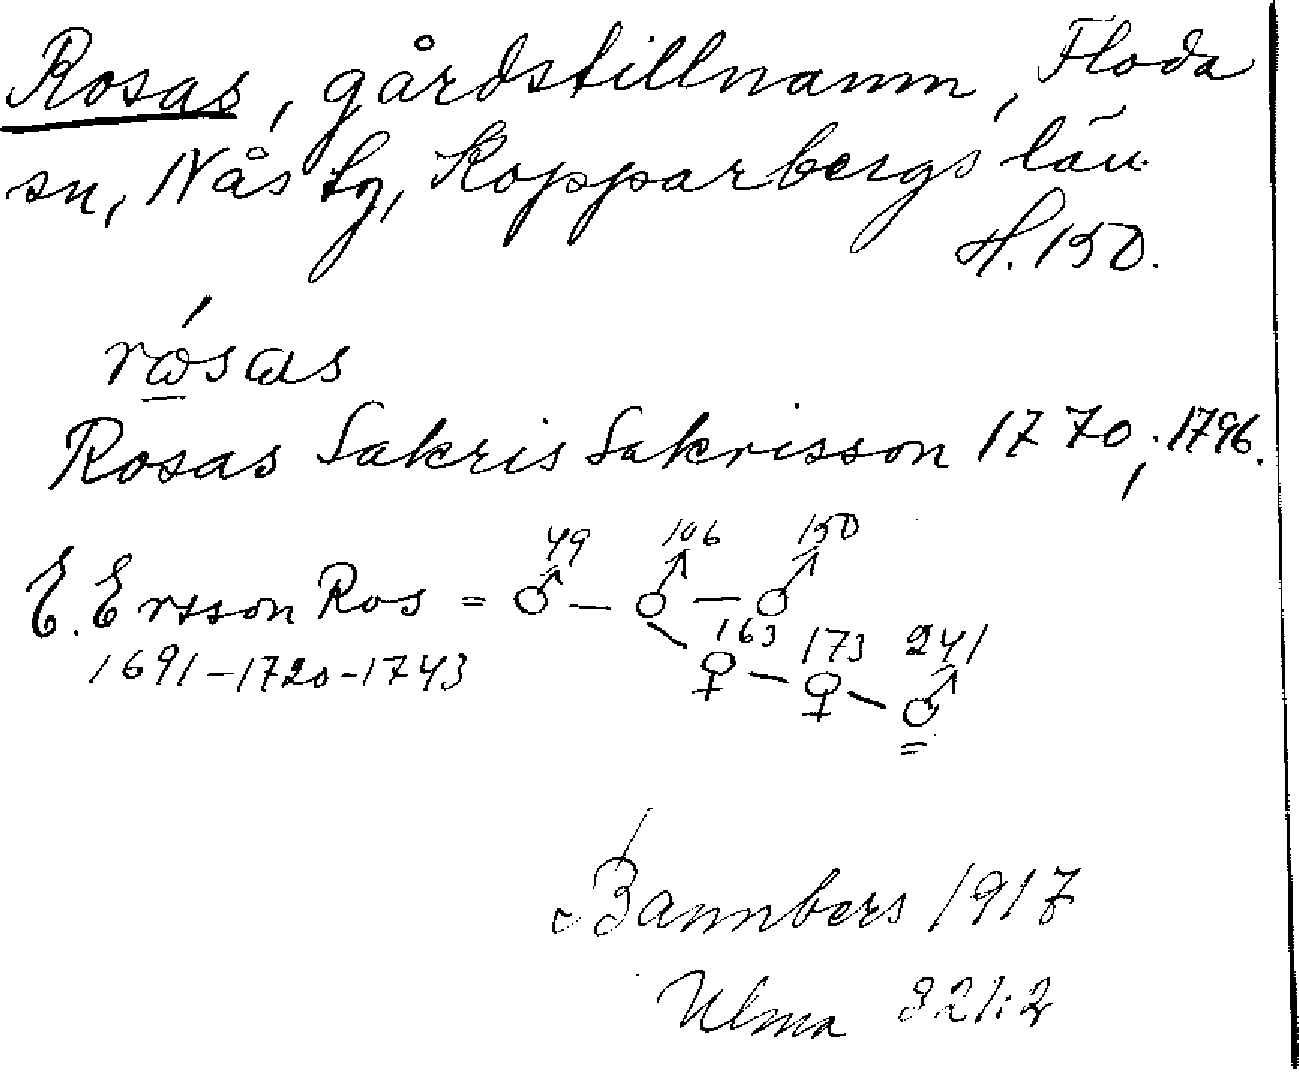 Rosas, gårdstillnamn, Floda
sn, Nås tg, Kopparbergs län.
H. 150.
rósas
Rosas Sakris Sakrisson 1770; 1796.
49 106 150
E. Ersson Ros = ♂ — ♂ — ♂
163 173 241
1691–1720–1743 ♀ — ♀ — ♂
Bannbers 1917
Ulma 321:2